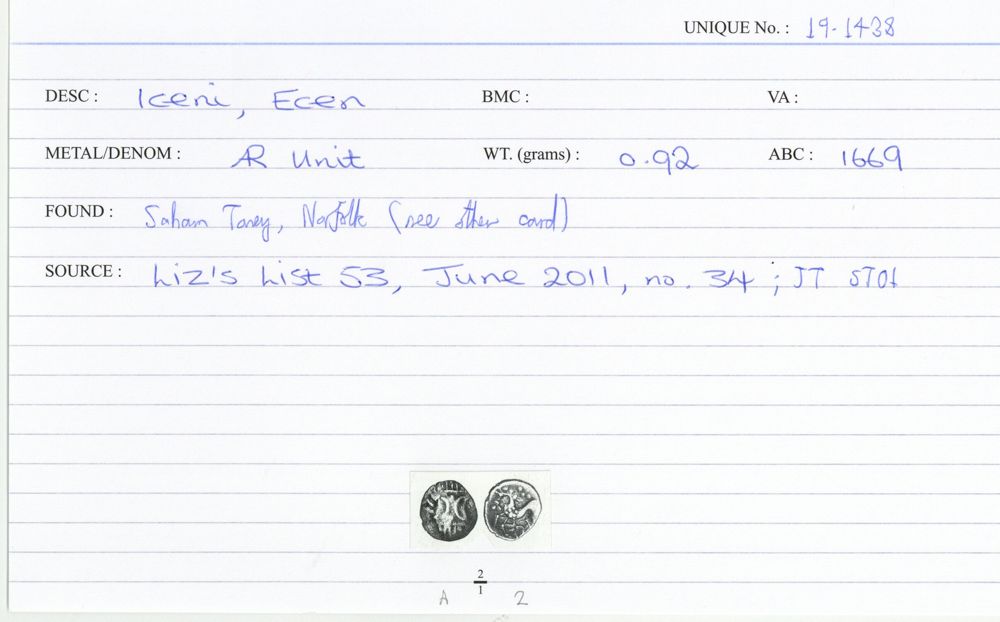 UNIQUE No. : 19-1438
DESC : Iceni, Ecen BMC : VA :
METAL/DENOM : AR Unit WT. (grams) : 0.92 ABC : 1669
FOUND : Saham Toney, Norfolk (see other card)
SOURCE : Liz's List 53, June 2011, no. 34 ; JT ST01
2
1
A 2